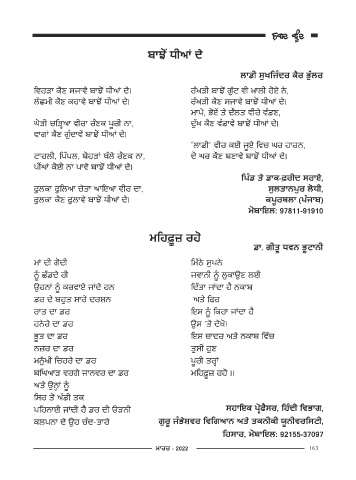 ਬਾਝੋਂ ਧੀਆਂ ਦੇ
ਲਾਡੀ ਸੁਖਜਿੰਦਰ ਕੌਰ ਭੁੱਲਰ
ਵਿਹੜਾ ਕੌਣ ਸਜਾਵੇ ਬਾਝੋਂ ਧੀਆਂ ਦੇ।
ਲੱਛਮੀ ਕੌਣ ਕਹਾਵੇ ਬਾਝੋਂ ਧੀਆਂ ਦੇ।
ਘੋੜੀ ਚੜ੍ਹਿਆ ਵੀਰਾ ਰੌਣਕ ਪੂਰੀ ਨਾ,
ਵਾਗਾਂ ਕੌਣ ਗੁੰਦਾਵੇਂ ਬਾਝੋਂ ਧੀਆਂ ਦੇ।
ਟਾਹਲੀ, ਪਿੱਪਲ, ਬੋਹੜਾਂ ਥੱਲੇ ਰੌਣਕ ਨਾ,
ਪੀਂਘਾਂ ਕੋਈ ਨਾ ਪਾਵੇ ਬਾਝੋਂ ਧੀਆਂ ਦੇ।
ਫੁਲਕਾ ਫੁਲਿਆ ਚੇਤਾ ਆਇਆ ਵੀਰ ਦਾ,
ਫੁਲਕਾ ਕੌਣ ਫੁਲਾਵੇ ਬਾਝੋਂ ਧੀਆਂ ਦੇ।
ਰੱਖੜੀ ਬਾਝੋਂ ਗੁੱਟ ਵੀ ਖ਼ਾਲੀ ਹੋਏ ਨੇ,
ਰੱਖੜੀ ਕੌਣ ਸਜਾਵੇ ਬਾਝੋਂ ਧੀਆਂ ਦੇ।
ਮਾਪੇ, ਭੋਏਂ ਤੇ ਦੌਲਤ ਵੀਰੇ ਵੰਡਣ,
ਦੁੱਖ ਕੌਣ ਵੰਡਾਵੇ ਬਾਝੋਂ ਧੀਆਂ ਦੇ।
'ਲਾਡੀ' ਵੀਰ ਕਈ ਜੂਏ ਵਿਚ ਘਰ ਹਾਰਨ,
ਦੋ ਘਰ ਕੌਣ ਬਣਾਵੇ ਬਾਝੋਂ ਧੀਆਂ ਦੇ।
ਪਿੰਡ ਤੇ ਡਾਕ-ਫ਼ਰੀਦ ਸਰਾਏ,
ਸੁਲਤਾਨਪੁਰ ਲੋਧੀ,
ਕਪੂਰਥਲਾ (ਪੰਜਾਬ)
ਮੋਬਾਇਲ: 97811-91910
ਮਹਿਫ਼ੂਜ਼ ਰਹੋ
ਡਾ. ਗੀਤੂ ਧਵਨ ਭੁਟਾਨੀ
ਮਾਂ ਦੀ ਗੋਦੀ
ਨੂੰ ਛੱਡਦੇ ਹੀ
ਉਹਨਾਂ ਨੂੰ ਕਰਵਾਏ ਜਾਂਦੇ ਹਨ
ਡਰ ਦੇ ਬਹੁਤ ਸਾਰੇ ਦਰਸ਼ਨ
ਰਾਤ ਦਾ ਡਰ
ਹਨੇਰੇ ਦਾ ਡਰ
ਭੂਤ ਦਾ ਡਰ
ਨਜ਼ਰ ਦਾ ਡਰ
ਮਨੁੱਖੀ ਚਿਹਰੇ ਦਾ ਡਰ
ਬਘਿਆੜ ਵਰਗੇ ਜਾਨਵਰ ਦਾ ਡਰ
ਅਤੇ ਉਨ੍ਹਾਂ ਨੂੰ
ਸਿਰ ਤੋਂ ਅੱਡੀ ਤਕ
ਪਹਿਨਾਈ ਜਾਂਦੀ ਹੈ ਡਰ ਦੀ ਓੜਨੀ
ਕਲਪਨਾ ਦੇ ਉਹ ਚੰਦ-ਤਾਰੇ
ਮਿੱਠੇ ਸੁਪਨੇ
ਜਵਾਨੀ ਨੂੰ ਲੁਕਾਉਣ ਲਈ
ਦਿੱਤਾ ਜਾਂਦਾ ਹੈ ਨਕਾਬ
ਅਤੇ ਫਿਰ
ਇਸ ਨੂੰ ਕਿਹਾ ਜਾਂਦਾ ਹੈ
ਉਸ 'ਤੇ ਦੇਖੋ!
ਇਸ ਚਾਦਰ ਅਤੇ ਨਕਾਬ ਵਿੱਚ
ਤੁਸੀਂ ਹੁਣ
ਪੂਰੀ ਤਰ੍ਹਾਂ
ਮਹਿਫ਼ੂਜ਼ ਰਹੋ॥
ਸਹਾਇਕ ਪ੍ਰੋਫੈਸਰ, ਹਿੰਦੀ ਵਿਭਾਗ,
ਗੁਰੂ ਜੰਭੇਸ਼ਵਰ ਵਿਗਿਆਨ ਅਤੇ ਤਕਨੀਕੀ ਯੂਨੀਵਰਸਿਟੀ,
ਹਿਸਾਰ, ਮੋਬਾਇਲ: 92155-37097
ਮਾਰਚ - 2022
163